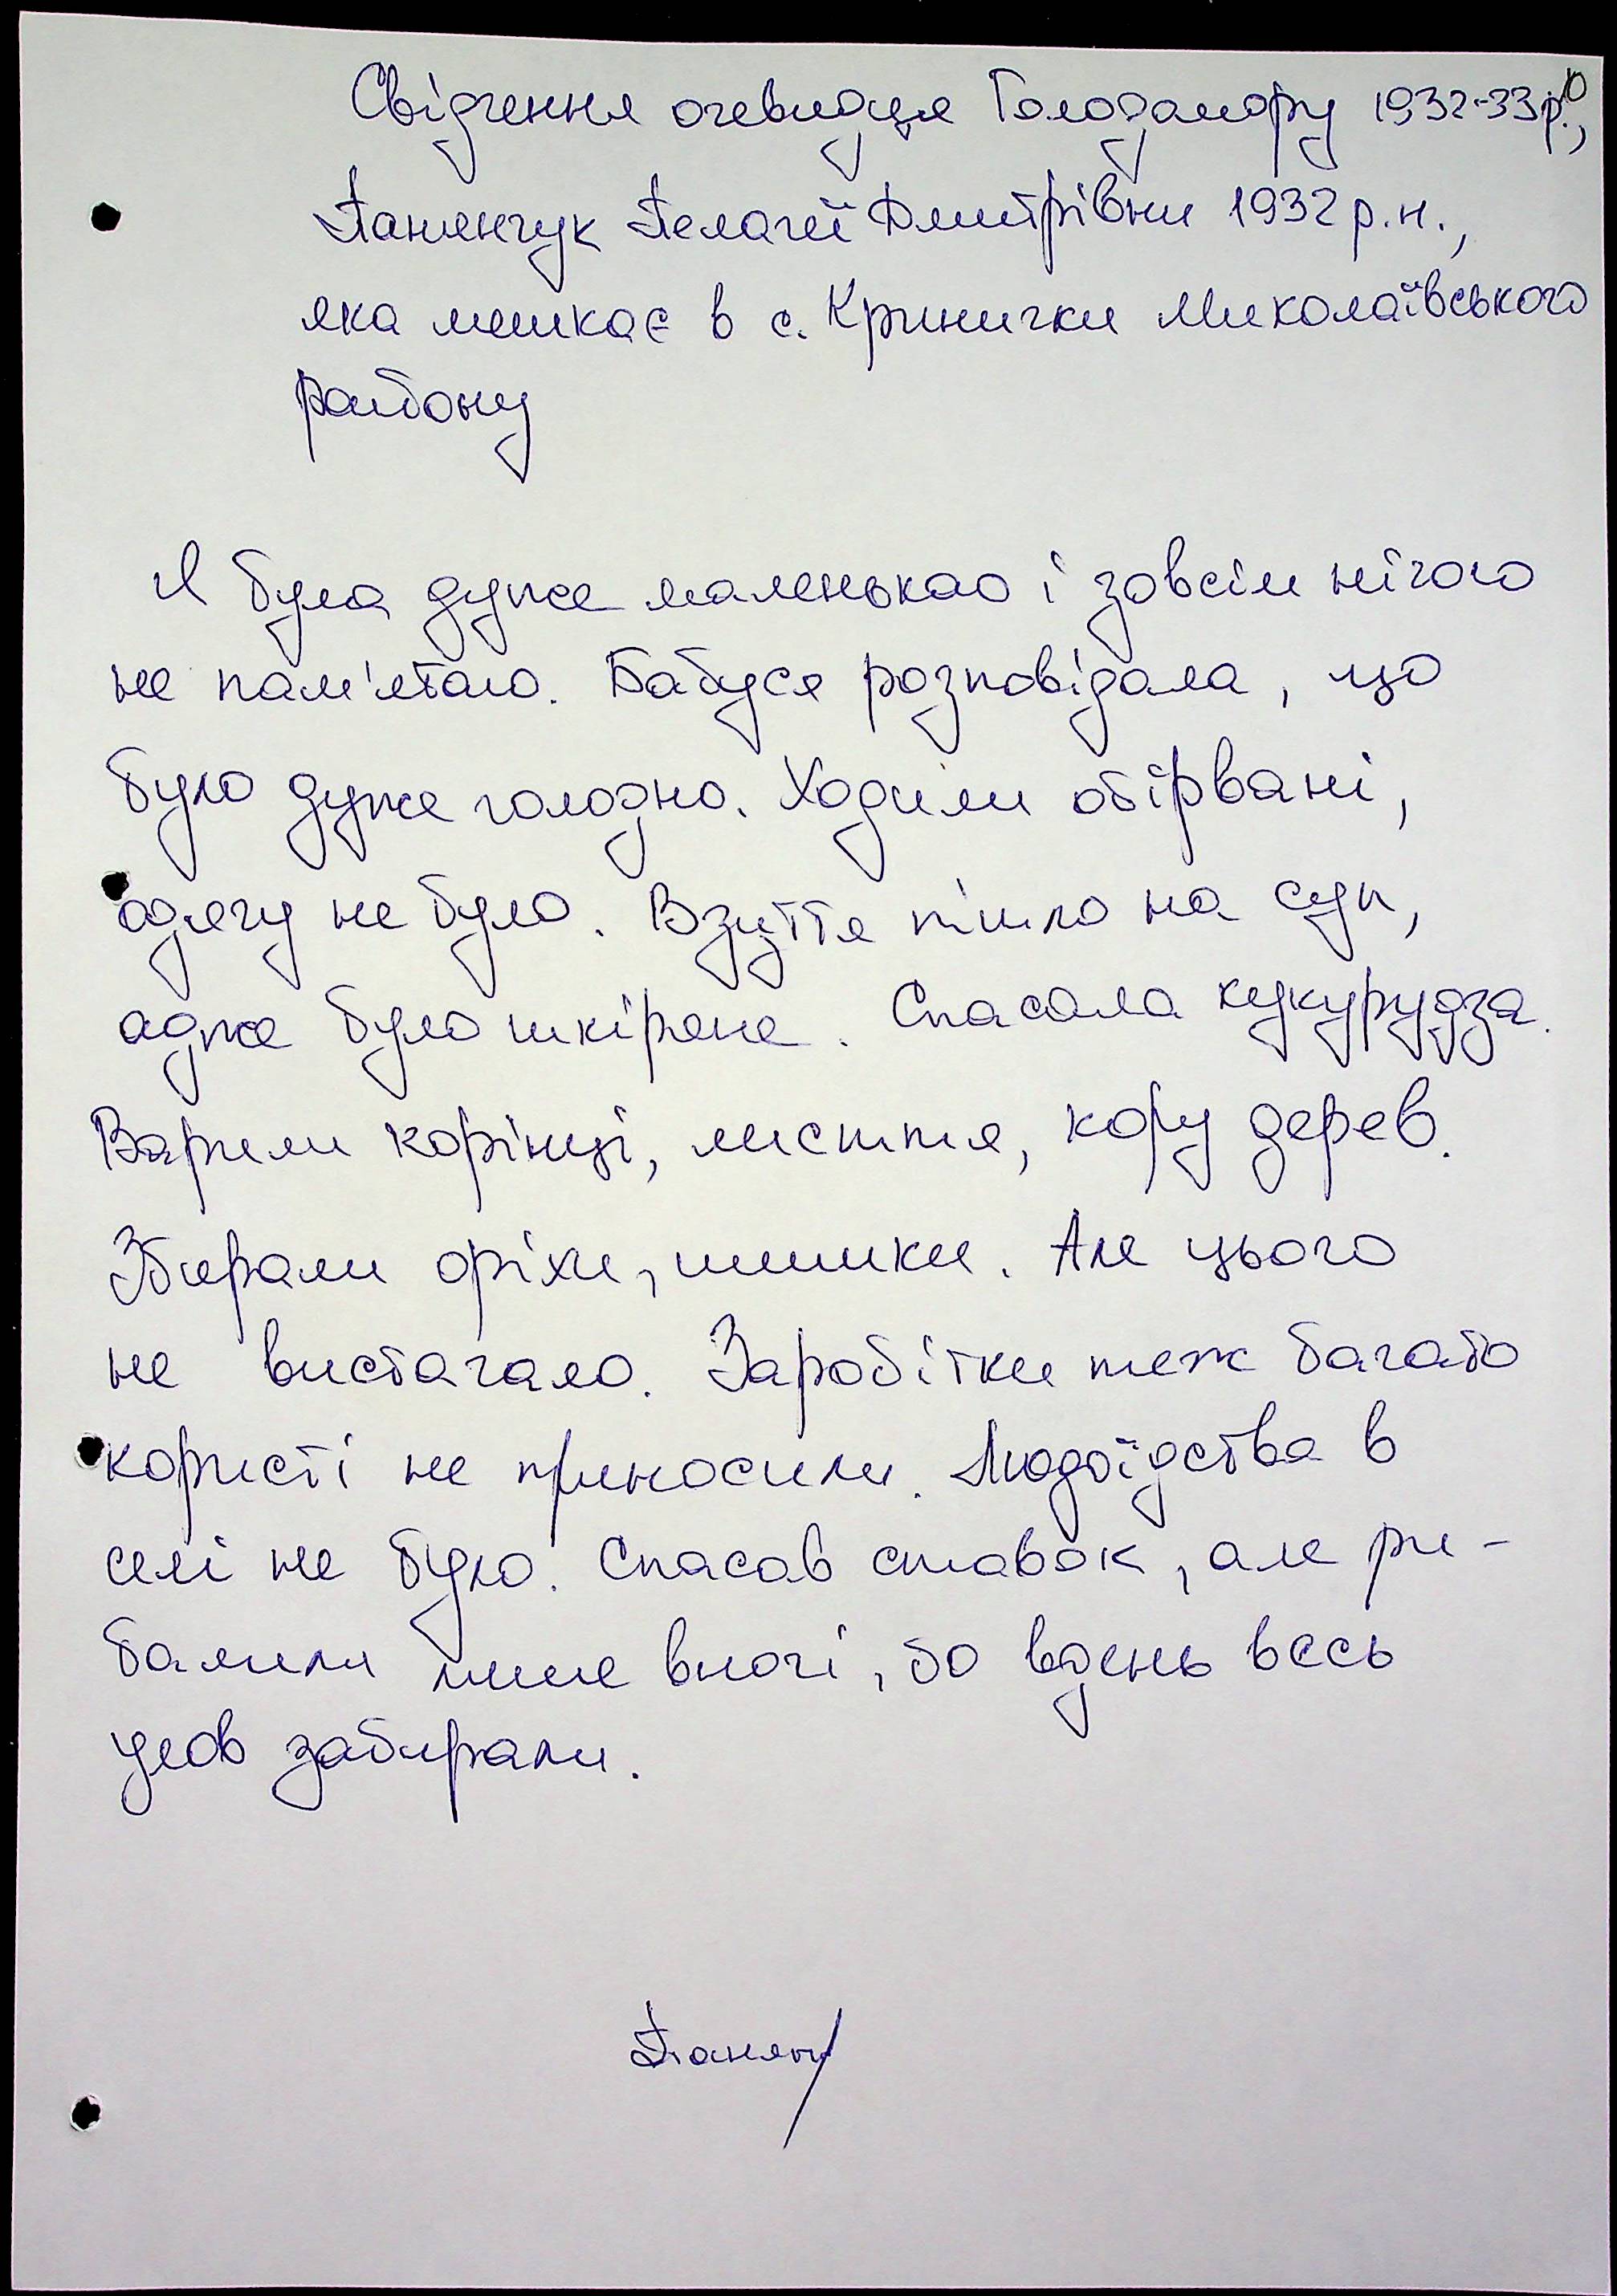 Свідчення очевидця Голодомору 1932-33р.р,
Панянчук Пелагеї Дмитрівни 1932 р.н.,
яка мешкає в с. Кринички Миколаївського
району
Я була дуже маленькою і зовсім нічого
не пам'ятаю. Бабуся розповідала, що
було дуже голодно. Ходили обірвані,
одягу не було. Взуття пішло на суп,
адже було шкіряне. Спасала кукурудза.
Варили корінці, листя, кору дерев.
Збирали оріхи, шишки. Але цього
не вистачало. Заробітки теж багато
користі не приносили. Людоїдства в
селі не було. Спасав ставок, але ри-
балили лише вночі, бо вдень весь
улов забирали.